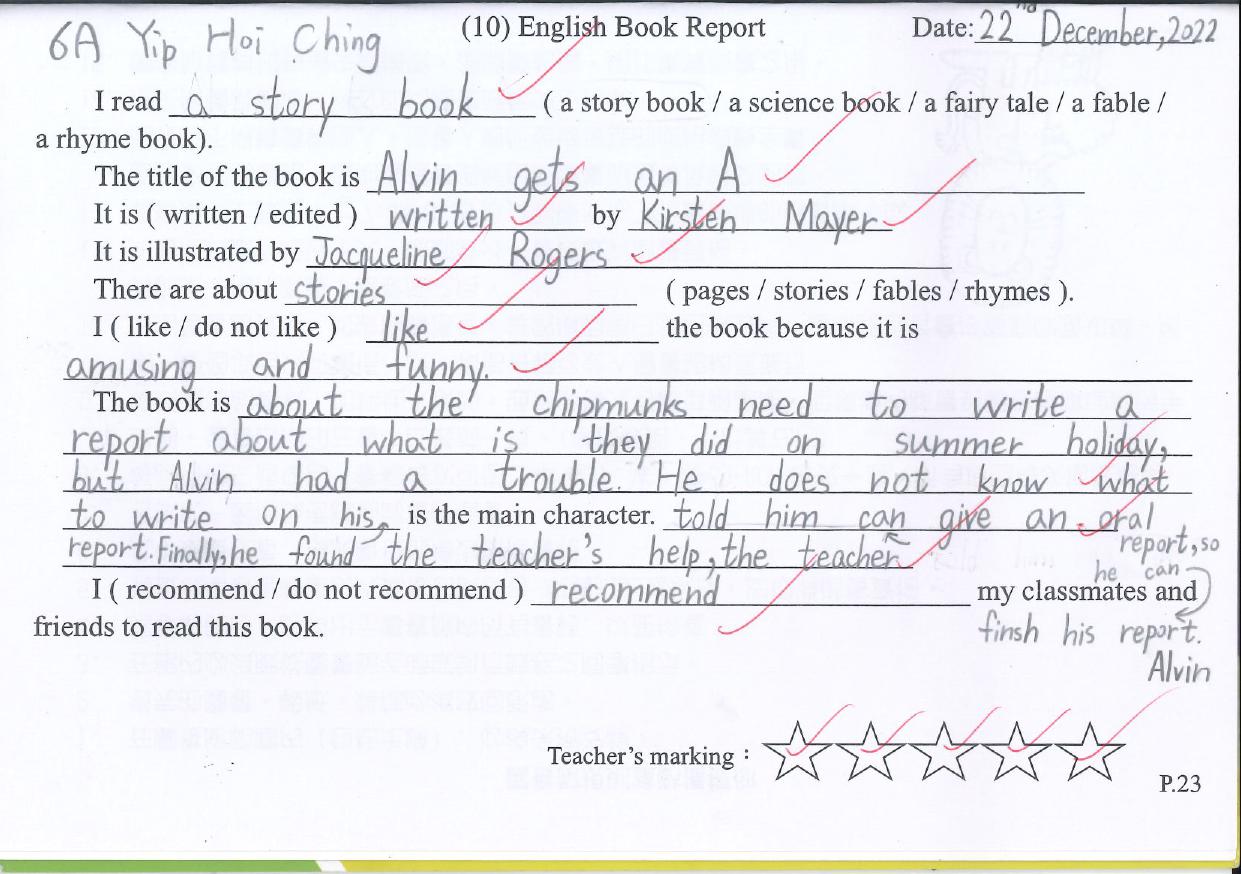 6A Yip Hoi Ching (10) English Book Report Date: 22nd December, 2022
I read a story book ( a story book / a science book / a fairy tale / a fable /
a rhyme book).
The title of the book is Alvin gets an A
It is ( written / edited ) written by Kirsten Mayer
It is illustrated by Jacqueline Rogers
There are about stories ( pages / stories / fables / rhymes ).
I ( like / do not like ) like the book because it is
amusing and funny.
The book is about the chipmunks need to write a
report about what is they did on summer holiday,
but Alvin had a trouble. He does not know what
to write on his is the main character. told him can give an oral
report. Finally, he found the teacher's help, the teacher report, so
he can
I ( recommend / do not recommend ) recommend my classmates and
friends to read this book. finsh his report.
Alvin
Teacher's marking :
P.23